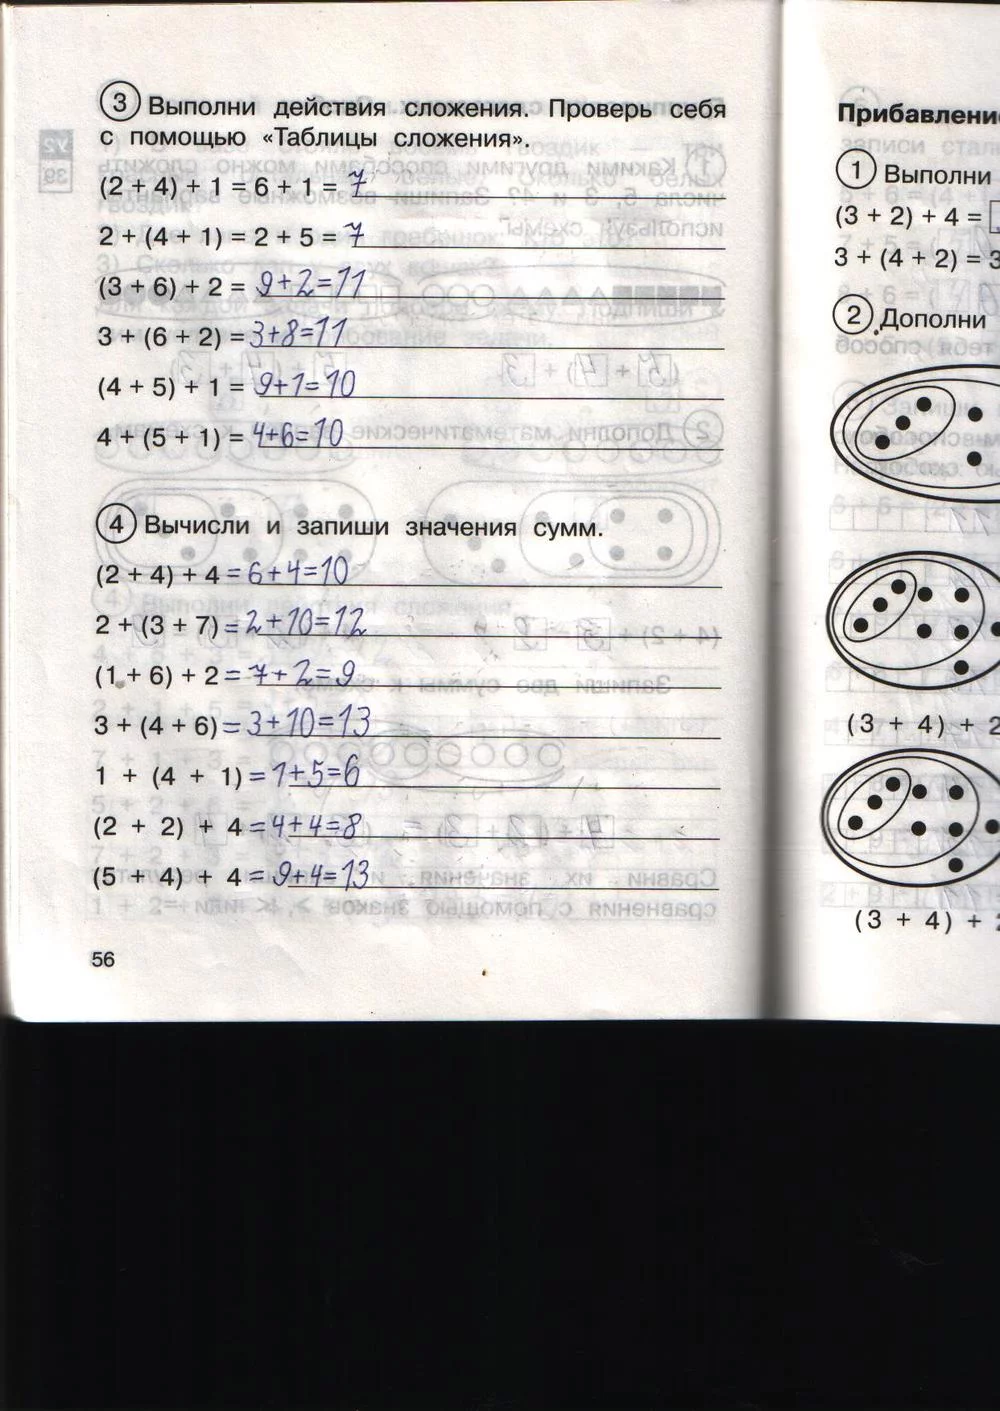 3 Выполни действия сложения. Проверь себя
с помощью «Таблицы сложения».
(2 + 4) + 1 = 6 + 1 = 7
2 + (4 + 1) = 2 + 5 = 7
(3 + 6) + 2 = 9+2=11
3 + (6 + 2) = 3+8=11
(4 + 5) + 1 = 9+1=10
4 + (5 + 1) = 4+6=10
4 Вычисли и запиши значения сумм.
(2 + 4) + 4 = 6+4=10
2 + (3 + 7) = 2+10=12
(1 + 6) + 2 = 7+2=9
3 + (4 + 6) = 3+10=13
1 + (4 + 1) = 1+5=6
(2 + 2) + 4 = 4+4=8
(5 + 4) + 4 = 9+4=13
56
Прибавление
1 Выполни
(3 + 2) + 4 =
3 + (4 + 2) = 3
2 Дополни
(3 + 4) + 2
(3 + 4) + 2